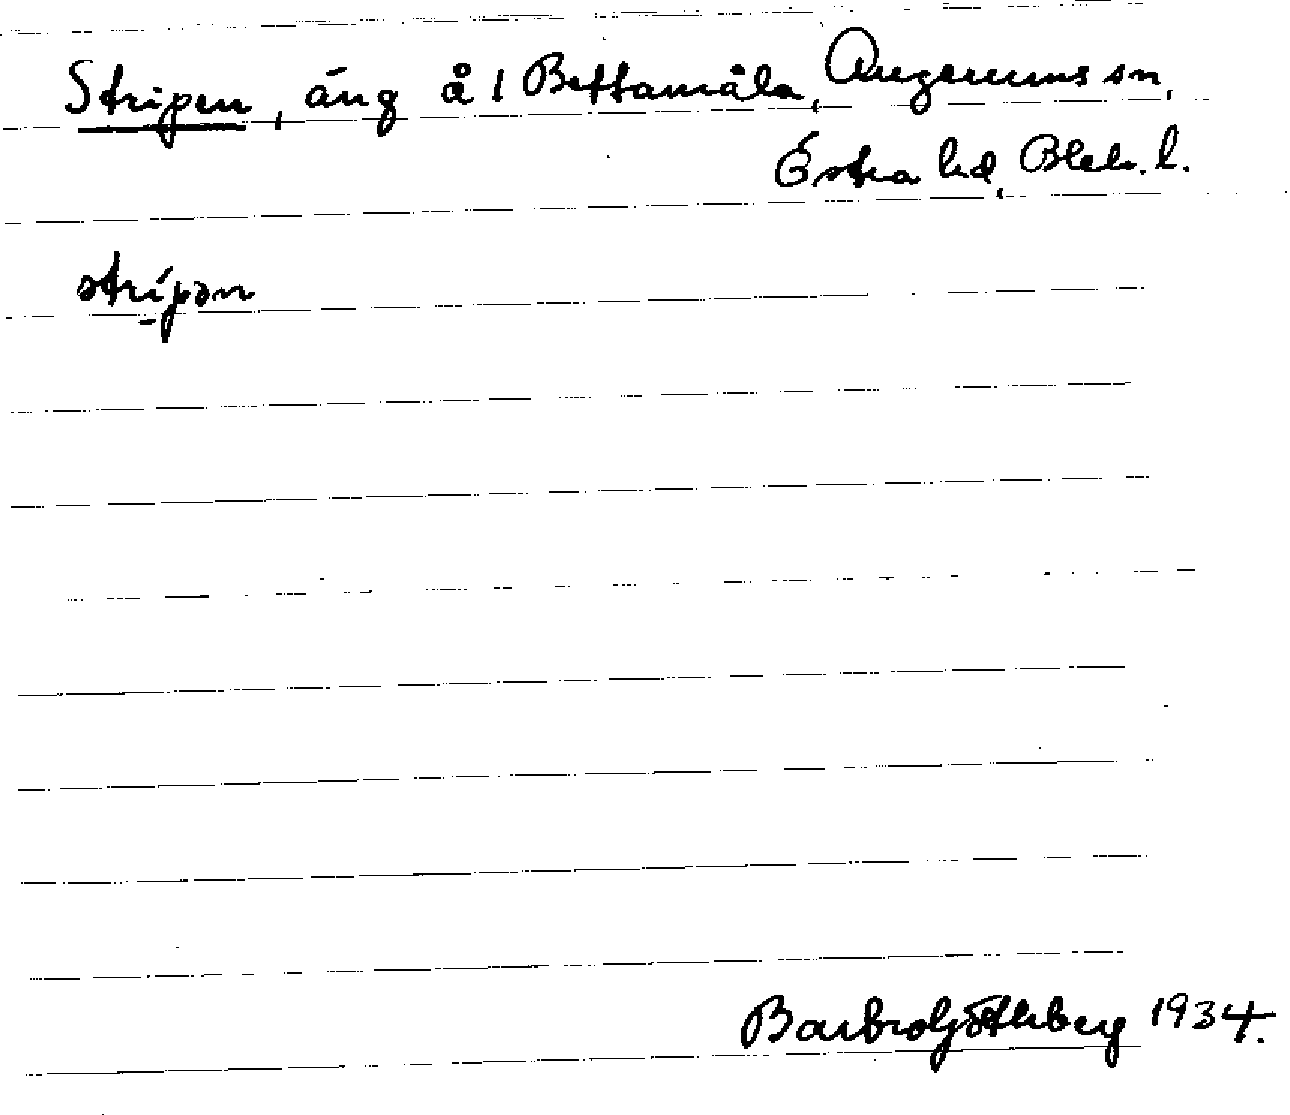 Stripen, äng å 1 Bettamåla, Augerums sn,
Östra hd, Blek. l.
strípən
Barbro Götlberg 1934.